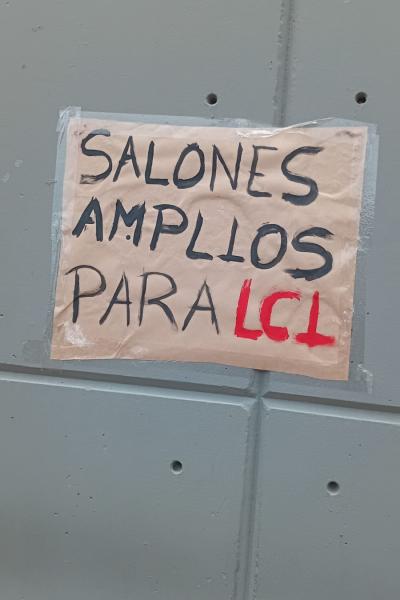 SALONES
AMPLIOS
PARA LCI